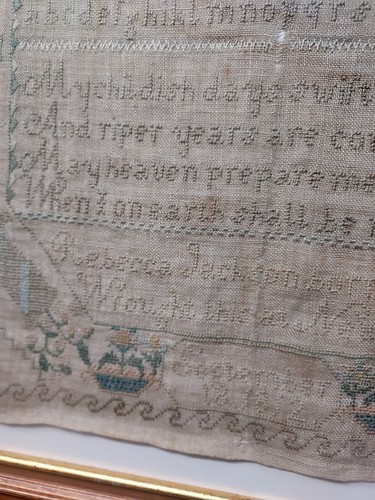 abcdefghiklmnopqrs
My childish days swift
And riper years are com
May heaven prepare me
When I on earth shall be
Rebecca Jackson
Wrought this at
September